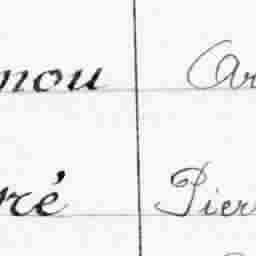 nou Ar
ré Pier